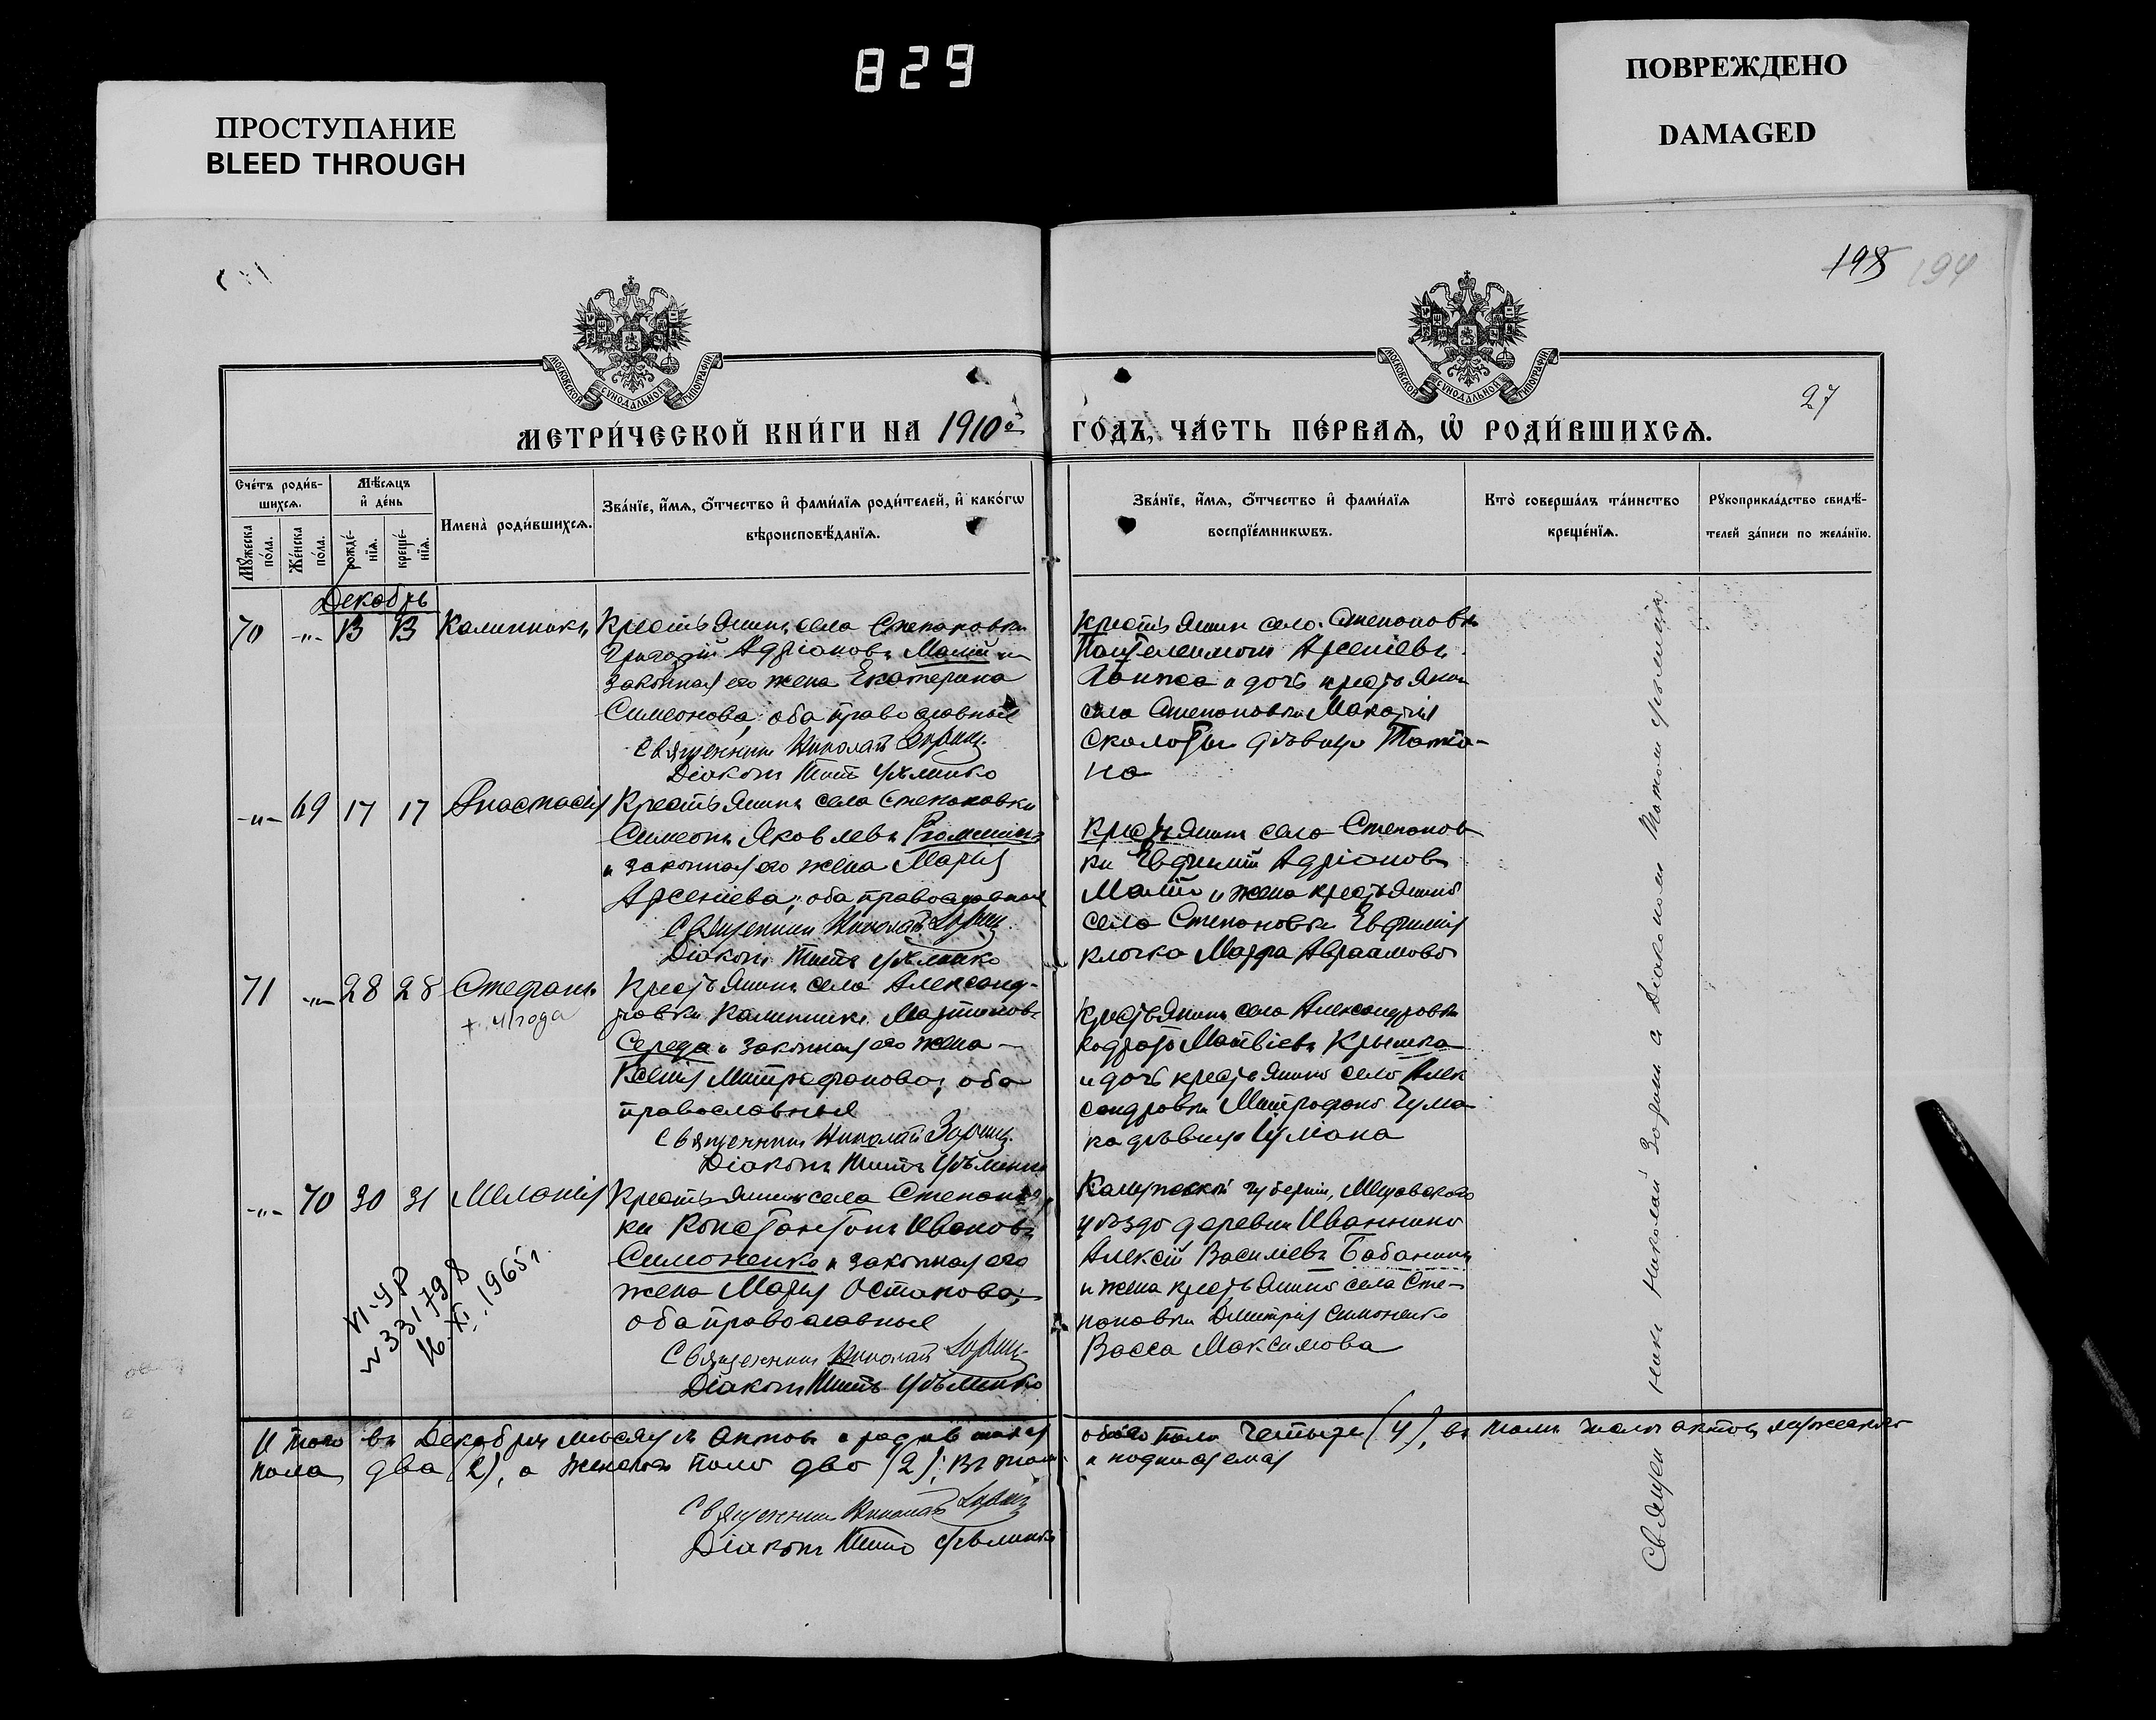 829
ПРОСТУПАНИЕ
BLEED THROUGH
ПОВРЕЖДЕНО
DAMAGED
198 194
27
МОСКОВСКОЙ СУНОДАЛЬНОЙ ТИПОГРАФІИ
МОСКОВСКОЙ СУНОДАЛЬНОЙ ТИПОГРАФІИ
МЕТРИ́ЧЕСКОЙ КНИ́ГИ НА 1910й ГО́ДЪ, ЧА́СТЬ ПЕ́РВАѦ, Ѡ҆ РОДИ́ВШИХСѦ.
Сче́тъ роди́в-
шихсѧ.
Мꙋ́жеска по́ла.
Же́нска по́ла.
Мѣ́сѧцъ
и҆ де́нь
рожде́-
нїѧ.
креще́-
нїѧ.
И҆мена̀ роди́вшихсѧ.
Зва́нїе, и҆́мѧ, ѻ҆́тчество и҆ фами́лїѧ роди́телей, и҆ како́гѡ
вѣроисповѣ́данїѧ.
Зва́нїе, и҆́мѧ, ѻ҆́тчество и҆ фами́лїѧ
воспрїе́мникѡвъ.
Кто̀ соверша́лъ та́инство
креще́нїѧ.
Рꙋкоприкла́дство свидѣ́-
телей за́писи по жела́нїю.
Декабрь
70 -"- 13 13 Калинникъ
Крестьянинъ села Степановки
Григорій Адріановъ Малій и
законная его жена Екатерина
Симеонова, оба православные
Священник Николай Зориц
Діаконъ Титъ
Крестьянин села Степановки
Пантелеимон Арсеніевъ
и дочь крестьянина
села Степановки Макарія
девица Татіа-
на
-"- 69 17 17 Анастасія
Крестьянинъ села Степановки
Симеонъ Яковлевъ
и законная его жена Марія
Арсеніева, оба православные
Священник Николай Зориц
Діаконъ Титъ
Крестьянинъ села Степанов
ки Евфимій Адріановъ
Малій и жена крестьянина
села Степановки Евфимія
Клочка Марфа Авраамова
71 -"- 28 28 Стефанъ
Крестьянинъ села Александ-
ровки Калинникъ Мартиновъ
Середа и законная его жена
Ксенія Митрофанова, оба
православные
Священник Николай Зориц
Діаконъ Титъ
Крестьянинъ села Александровки
Матвіевъ Крышка
и дочь крестьянина села Алек
сандровки Митрофана Чума
ка девица Іуліана
-"- 70 30 31 Меланія
Крестьянинъ села Степанов
ки Константинъ Ивановъ
Симоненко и законная его
жена Марія Остапова,
оба православные
Священник Николай Зориц
Діаконъ Титъ
Калужской губерніи, Мещовского
уѣзда деревни Иваннино
Алексій Василіевъ Бабанинъ
и жена крестьянина села Сте-
пановки Димитрія Симоненко
Васса Максимова
VI-УР
N 331798
16.XI.1965г.
Священникъ Николай Зориц съ Діаконом Титом
Итого въ Декабре месяце актовъ о родившихся обоего пола четыре (4), въ том числе актов мужеского
пола два (2), а женского пола два (2); въ том и подписуемся
Священник Николай Зориц
Діаконъ Титъ